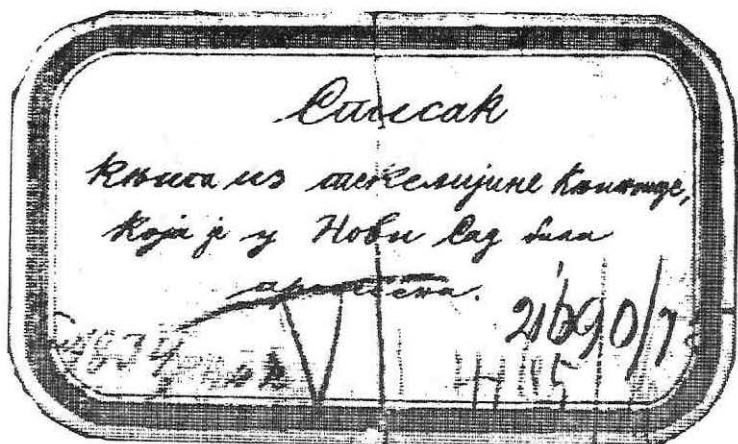 Списак
књига из текелијине књижнице,
која је у Нови Сад била
пренесена.
21690/73